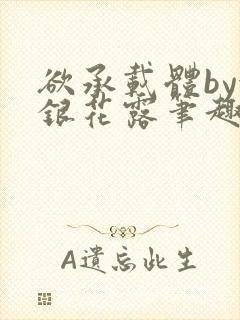 欲承載體by
銀花露筆趣
A遺忘此生